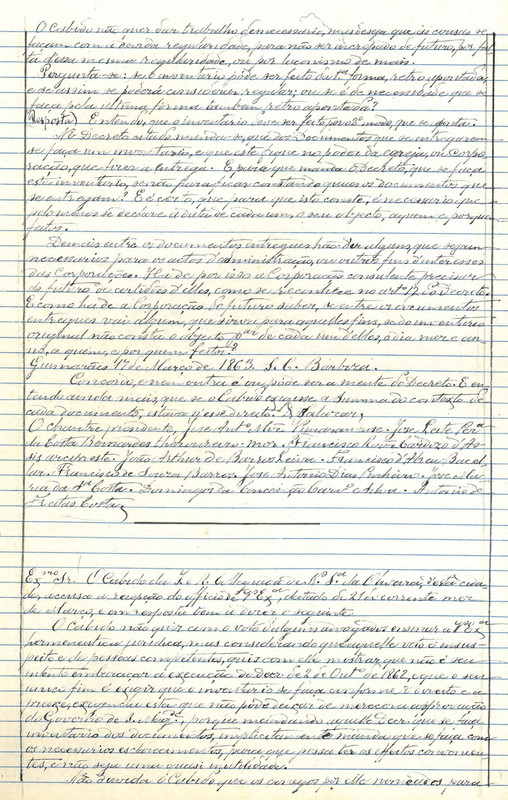 O Cabido não quer dar trabalho desnecessario, mas deseja que as cousas se
façam com a devida regularidade, para não ser increpado de futuro, por fal
ta d'essa mesma regularidade, ou por luconismo de mais.
Pergunta-se: se o inventario póde ser feito da 1ª forma, retro apontada,
e se assim se poderá considerar regular; ou se é de necessidade que se
faça pela ultima forma tambem retro apontada?
(Resposta) Entendo, que o inventario deve ser feito, por 2º modo, que se aponta.
No Decreto citado manda-se, que dos documentos que se entregarem
se faça um inventario, e que este fique no poder da egreja, ou Corpo
ração, que fizer a entrega. E para que manda o Decreto, que se faça
este inventario, senão para ficar constando quaes os documentos que
se entregam? E é certo, que para que isto conste, é necessario que
pelo menos se declare a data de cada um, o seu objecto, a quem e por quem
feitos.
Demais entre os documentos entregues hão-de ir alguns, que sejam
necessarios para os actos d'administração, ou outros fins d'interesses
das Corporações. Ha de por isso a Corporação consulente precisar
de futuro de certidões d'elles, como se reconhece no artº do Decreto.
E como ha de a Corporação de futuro saber, se entre os documentos
entregues vai algum, que sirva para aquelles fins, se do inventario
original não consta o objecto de cada um d'elles, o dia mez e an
no, a quem, e por quem feitos?
Guimarães 17 de Março de 1863. S. C. Barbosa.
Concordo, e nem outra é ou póde ser a mente do Decreto. E en
tendo ainda mais que se o Cabido exigisse a summa do contexto de
cada documento, estava n'esse direito. Salazar,
O chantre presidente, José Antº Guimarães. José Leite
da Costa Bernardes thesoureiro-mór. Francisco Cardozo d'As
sis arcipreste. João Arthur de Barros Leiva. Francisco d'Abreu Bacel
lar. Francisco de Souza Barros. José Antonio Dias Pinheiro. José Ma
ria da Costa. Domingos da Conceição Carvº e Silva. Antonio de
Freitas Costa,
Exmo Sr. O Cabido da I. e R. Collegiada de N. Sª da Oliveira, d'esta cida
de, accusa a recepção do officio de V. Exª, datado de 21 do corrente mez
de Março, e em resposta tem a dizer o seguinte.
O Cabido não quiz com o voto d'algum advogado ensinar a V. Exª
hermeneutica juridica, mas considerando que aquelle voto é insus
peito e de pessoas competentes, quiz com elle mostrar que não é seu
intento embaraçar a execução do Decr. de 2 de Outº de 1862, e que o seu
unico fim é exigir que o inventario se faça conforme o direito e a
praxe, exigencia esta que não póde deixar de merecer a approvação
do Governo de S. Magde, porque mandando aquelle Decr. que se faça
inventario dos documentos, implicitamente manda que se faça com
os necessarios esclarecimentos, para que possa ter os effeitos convenien
tes, e não seja uma quasi inutilidade.
Não duvida o Cabido que os conegos por elle nomeados, para